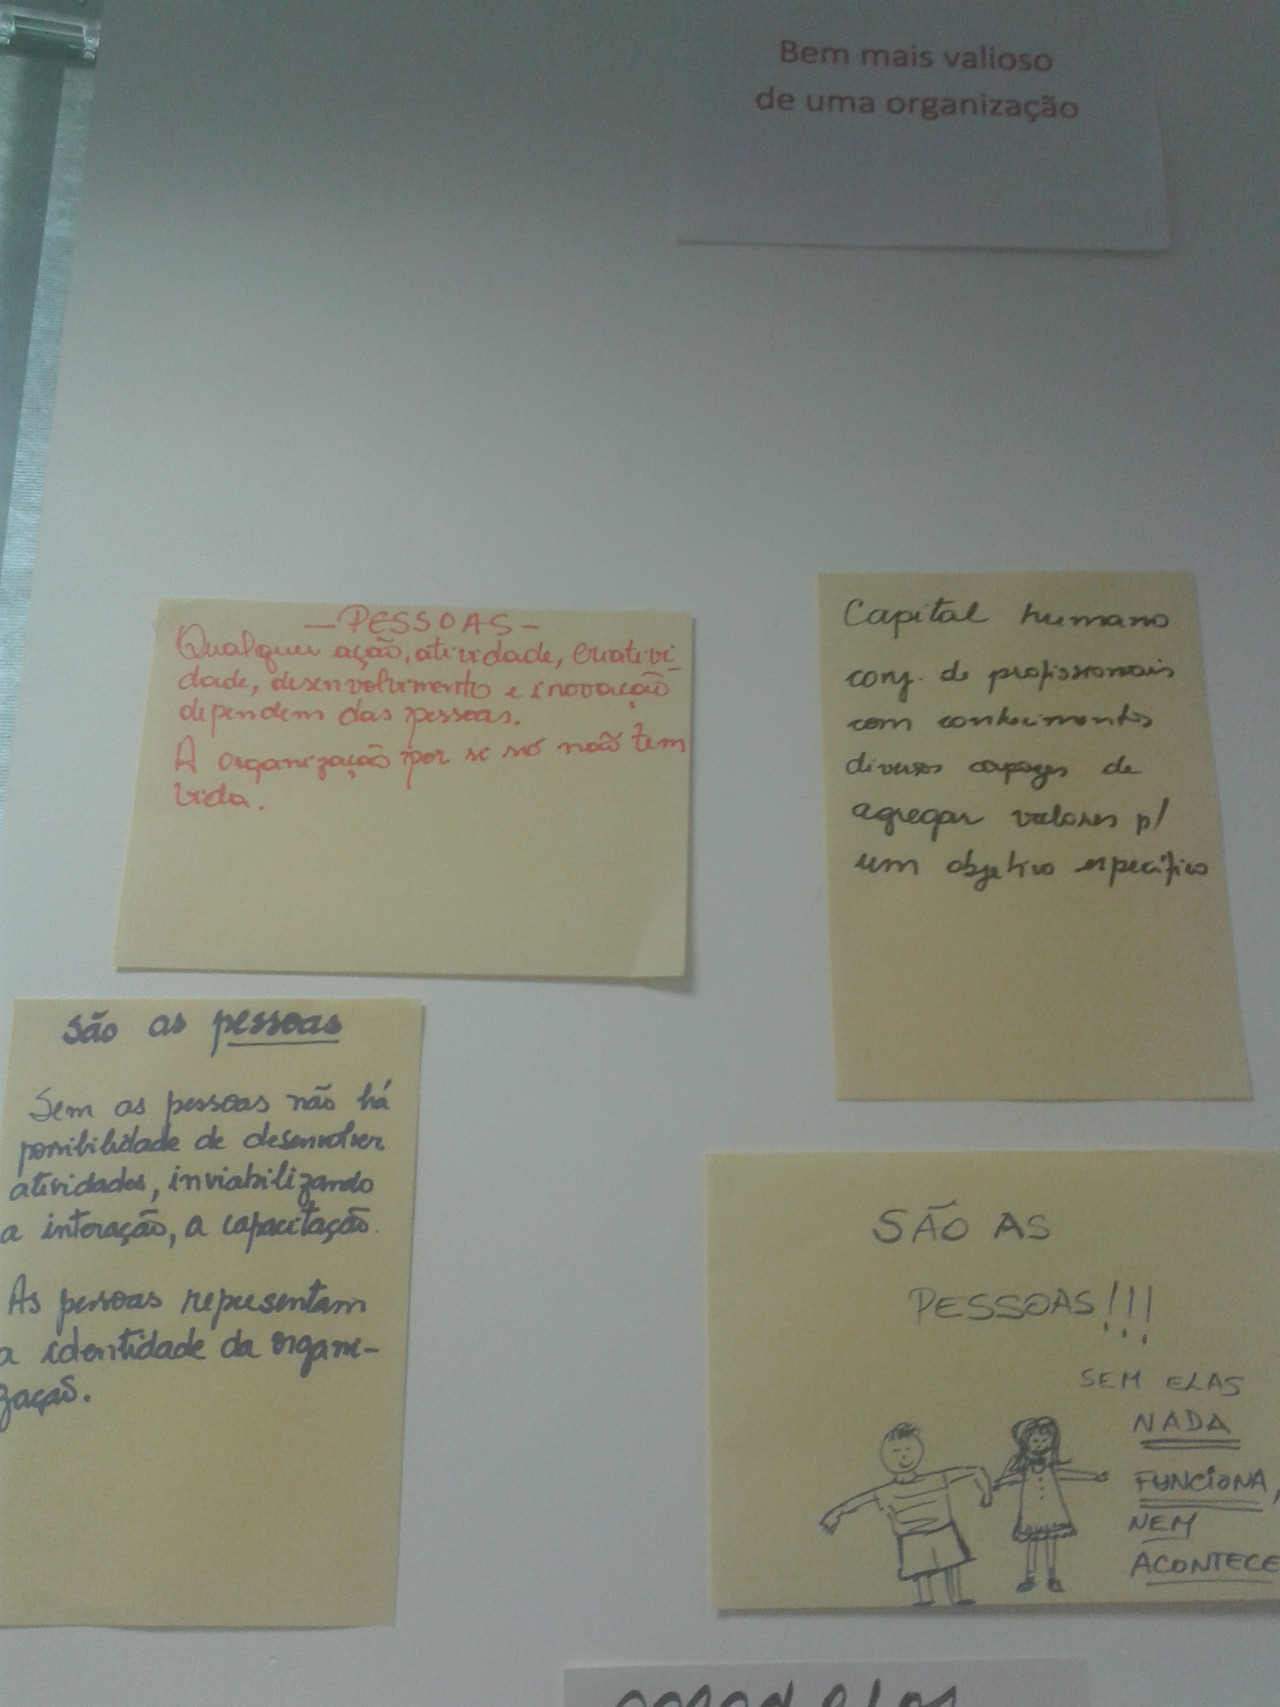 Bem mais valioso
de uma organização
- PESSOAS -
Qualquer ação, atividade, criativi-
dade, desenvolvimento e inovação
dependem das pessoas.
A organização por si só não tem
vida.
Capital humano
conj. de profissionais
com conhecimentos
diversos capazes de
agregar valores p/
um objetivo específico
São as pessoas
Sem as pessoas não há
possibilidade de desenvolver
atividades, inviabilizando
a interação, a capacitação.
As pessoas representam
a identidade da organi-
zação.
SÃO AS
PESSOAS!!!
SEM ELAS
NADA
FUNCIONA,
NEM
ACONTECE